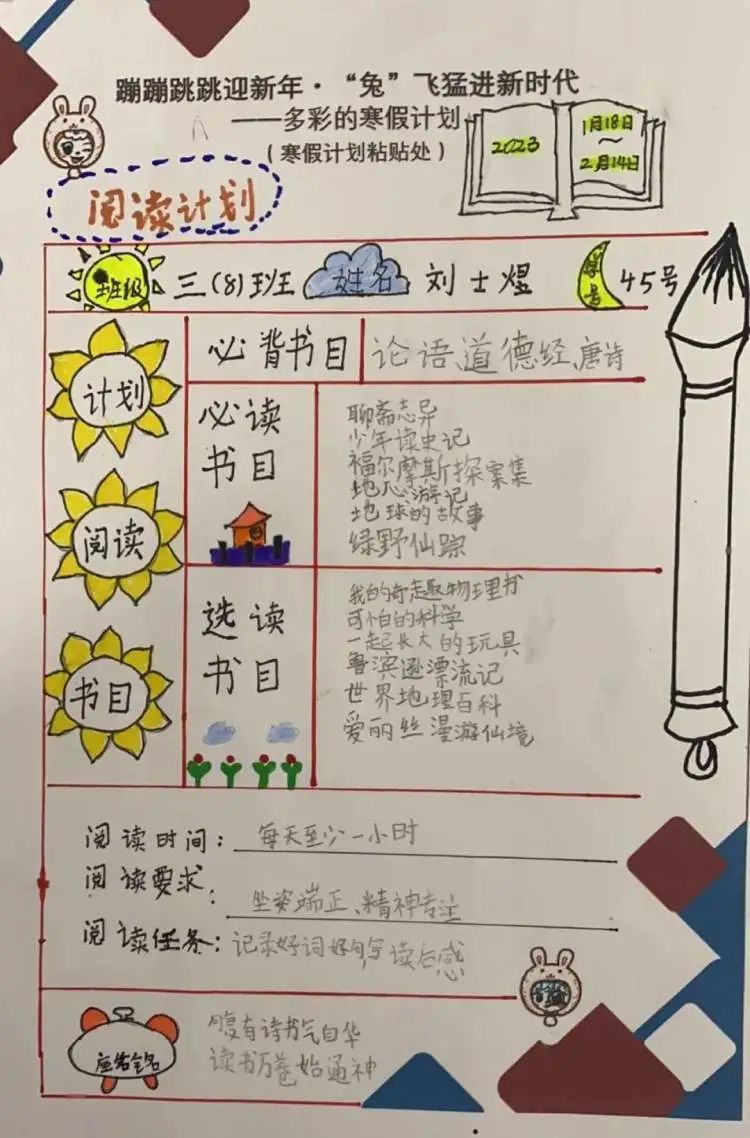 蹦蹦跳跳迎新年·“兔”飞猛进新时代
——多彩的寒假计划
（寒假计划粘贴处）
2023
1月18日
～
2月14日
阅读计划
班级 三(8)班 姓名 刘士煜 学号 45号
计划
阅读
书目
必背书目 论语、道德经、唐诗
必读
书目
聊斋志异
少年读史记
福尔摩斯探案集
地心游记
地球的故事
绿野仙踪
选读
书目
我的奇趣物理书
可怕的科学
一起长大的玩具
鲁滨逊漂流记
世界地理百科
爱丽丝漫游仙境
阅读时间：每天至少一小时
阅读要求：坐姿端正、精神专注
阅读任务：记录好词好句，写读后感
座右铭
腹有诗书气自华
读书万卷始通神